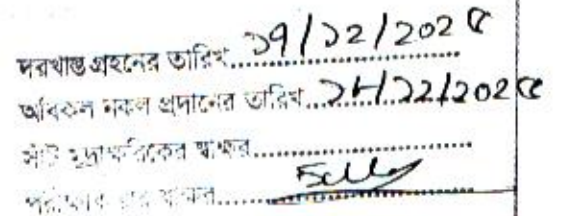 দরখাস্ত গ্রহনের তারিখ ১৭/১২/২০২৫
অবিকল নকল প্রদানের তারিখ ২৮/১২/২০২৫
সাঁট মুদ্রাক্ষরিকের স্বাক্ষর
স্বাক্ষর